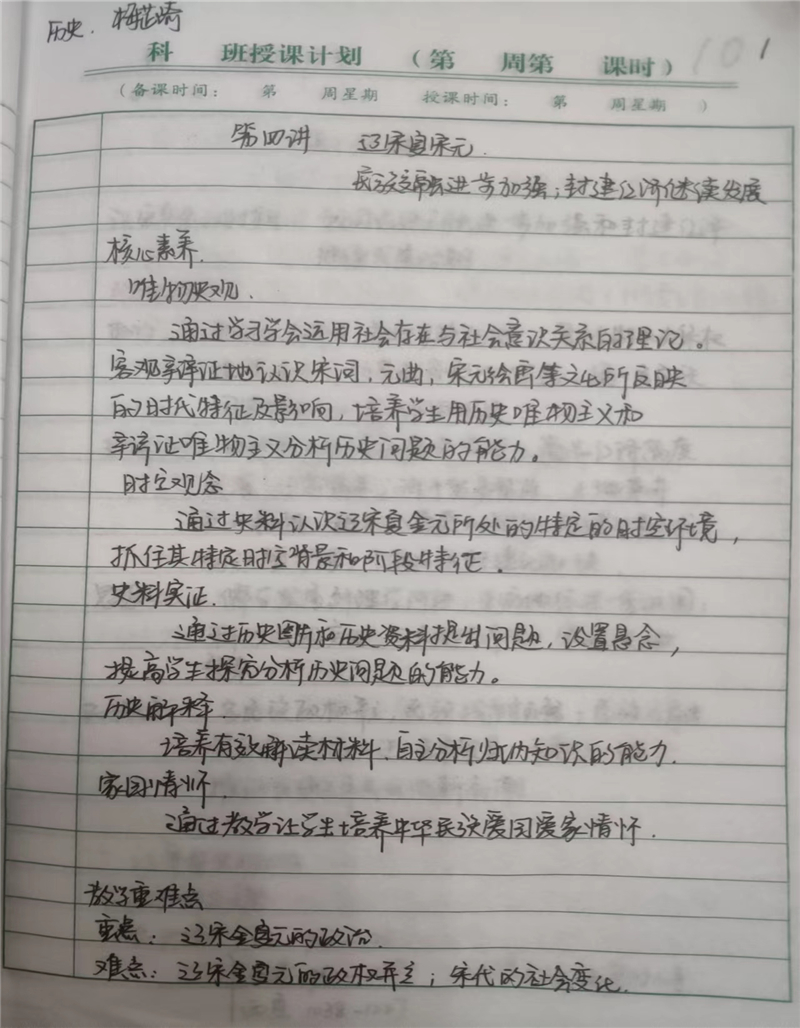 历史.
101
科 班授课计划 (第 周第 课时)
(备课时间: 第 周星期 授课时间: 第 周星期 )
第四讲 辽宋夏宋元.
民族交融进一步加强;封建经济继续发展
核心素养.
唯物史观.
通过学习学会运用社会存在与社会意识关系的理论。
客观辩证地认识宋词,元曲,宋元绘画等文化所反映
的时代特征及影响,培养学生用历史唯物主义和
辩证唯物主义分析历史问题的能力。
时空观念
通过史料认识辽宋夏金元所处的特定的时空环境,
抓住其特定时空背景和阶段特征.
史料实证.
通过历史图片和历史资料提出问题,设置悬念,
提高学生探究分析历史问题的能力。
历史解释.
培养有效解读材料.自主分析归纳知识的能力.
家国情怀.
通过教学让学生培养中华民族爱国爱家情怀.
教学重难点
重点:辽宋金夏元的政治.
难点:辽宋金夏元的政权并立;宋代的社会变化.